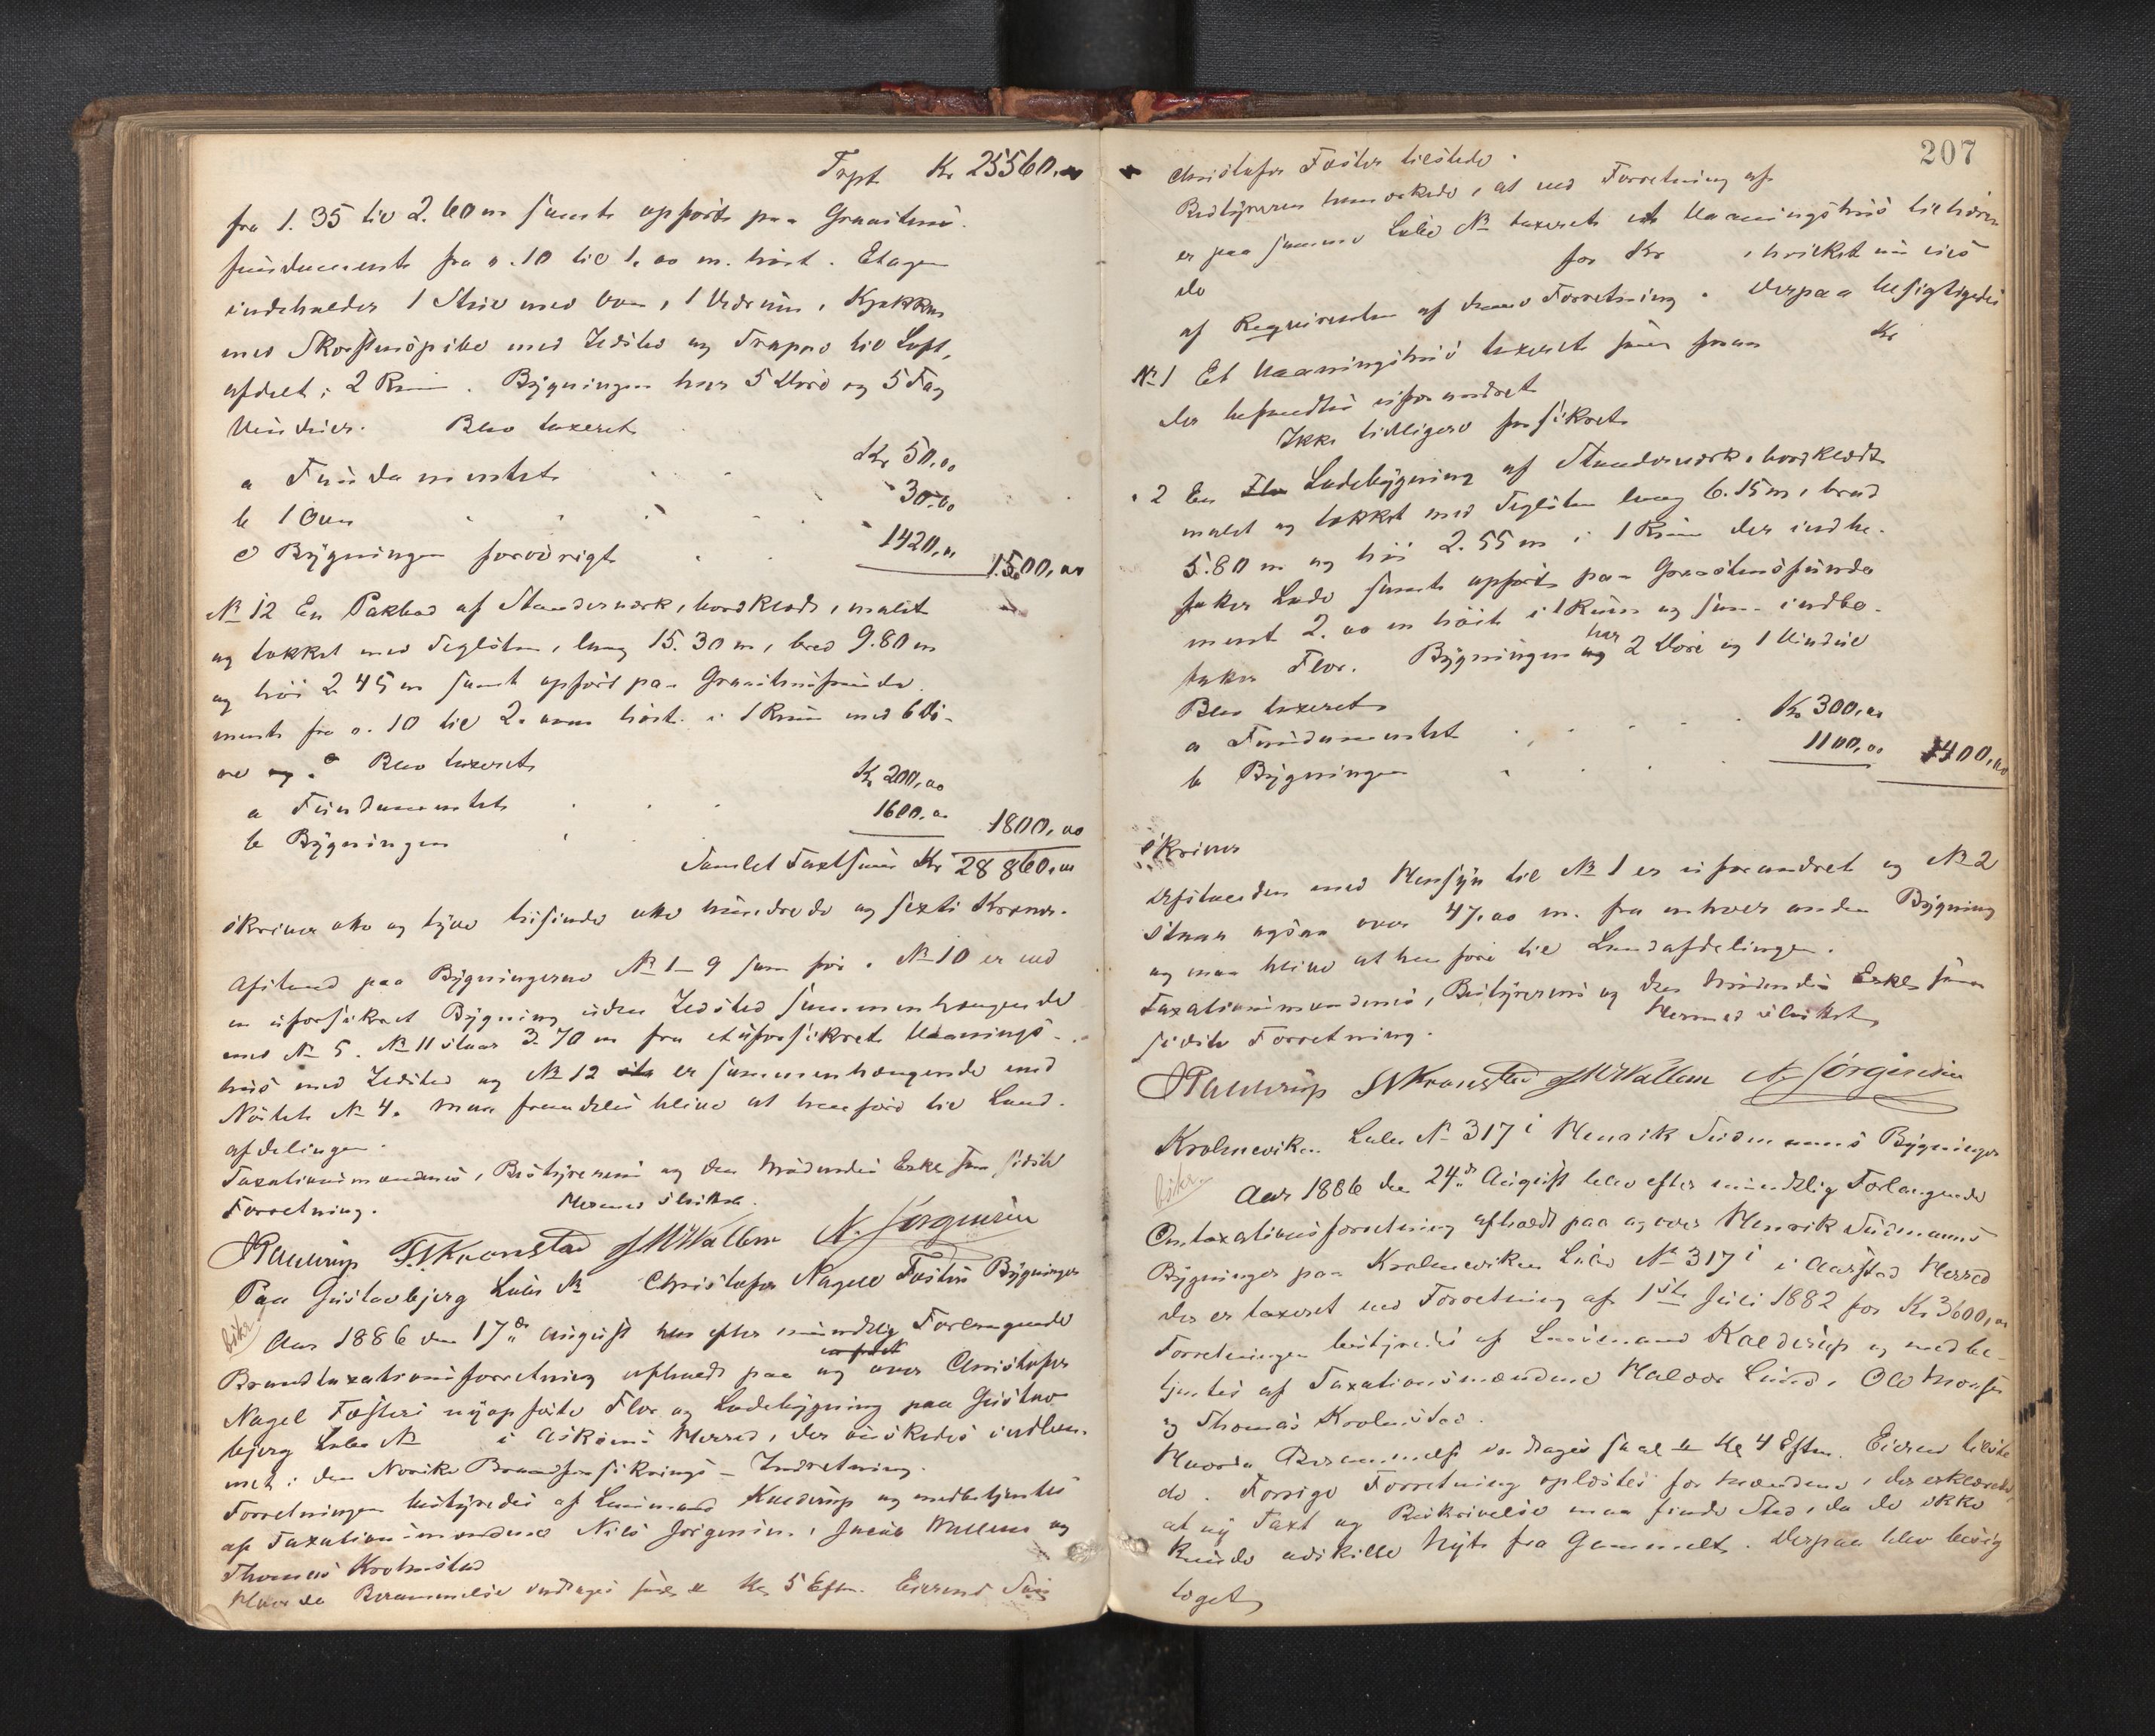 Trpt Kr 25560,00
fra 1.35 til 2.60 m samt opført paa Graastens-
fundament fra 0.10 til 1,00 m. høit. Etagen
indeholder 1 Stue med Ovn, 1 Værelse, Kjøkken
med Skorstenspibe med Ildsted og Trappe til Loft,
afdelt i 2 Rum. Bygningen har 5 Døre og 5 Fag
Vinduer. Blev taxeret
a Fundamentet Kr 50,00
b 1 Ovn 30,00
c Bygningen forøvrigt 1420,00 1500,00
No 12 En Pakbod af Stenderværk, bordklædt, malet
og takket med Teglsten, lang 15.30 m, bred 9.80 m
og høi 2.45 m samt opført paa Graastensfunda-
ment fra 0.10 til 2.00 m høit i 1 Rum med 6 Dø-
re og. Blev taxeret
a Fundamentet Kr 200,00
b Bygningen 1600,00 1800,00
Samlet Taxtsum Kr 28860,00
skriver otte og tyve tusinde otte hundrede og sexti Kroner.
Afstand paa Bygningerne No 1–9 som før. No 10 er ved
en uforsikret Bygning uden Ildsted sammenhængende
med No 5. No 11 staar 3.70 m fra et uforsikret Vaanings-
huus med Ildsted og No 12 er sammenhængende med
Nøstet No 4. Maa fremdeles blive at henføre til Land-
afdelingen.
Taxationsmændenes, Bestyrerens og den Mødendes Erkl. som sidste
Forretning. Hermed sluttet.
JKaldrup T.N Kronstad JMWallem N. Jørgensen
Paa Gustavbjerg Løbe No Christofer Nagell Fasters Bygninger
Aar 1886 den 17de August blev efter mundtlig Forlangende
Brandtaxationsforretning afholdt paa og over Christofer
Nagel Fasters nyopførte Flor og Ladebygning paa Gustav-
bjerg Løbe No i Askøens Herred, der ønskedes indlem-
met i den Norske Brandforsikrings-Indretning.
Forretningen bestyredes af Lensmand Kaldrup og medbetjentes
af Taxationsmændene Nils Jørgensen, Jacob Wallem og
Thomas Krohnstad
Hvorda Berammelse undtages saal. Kl 5 Eftm. Eierens Søn
207
Christofer Faster tilstede.
Bestyreren bemærkede, at ved Forretning af
er paa samme Løbe No taxeret et Vaaningshus tilhørende
do for Kr , hvilket nu viis
af Reqvirenten af denne Forretning. Derpaa besigtigedes
No 1 Et Vaaningshus taxeret som foran Kr
der befandtes uforandret
Ikke tidligere forsikret
" 2 En Ladebygning af Stenderværk, bordklædt,
malet og takket med Teglsten lang 6.15 m, bred
5.80 m og høi 2.55 m i 1 Rum der indbe-
fatter Lade samt opført paa Graastensfunda-
ment 2.00 m høit i 1 Rum og som indbe-
fatter Flor. Bygningen har 2 Døre og 1 Vindue
Blev taxeret
a Fundamentet Kr 300,00
b Bygningen 1100,00 1400,00
skriver
Afstanden med Hensyn til No 1 er uforandret og No 2
staar ogsaa over 47,00 m. fra enhver anden Bygning
og maa blive at henføre til Landafdelingen.
Taxationsmændenes, Bestyrerens og den Mødendes Erkl. som
sidste Forretning. Hermed sluttet
JKaldrup TNKronstad JMWallem N. Jørgensen
Krohneviken Løbe No 317 i Henrik Tudmanns Bygninger
Aar 1886 den 24de August blev efter mundtlig Forlangende
Omtaxationsforretning afholdt paa og over Henrik Tudmanns
Bygninger paa Krohneviken Løbe No 317 i i Aarstad Herred
der er taxeret ved Forretning af 1ste Juli 1882 for Kr 3600,00
Forretningen bestyredes af Lensmand Kaldrup og medbe-
tjentes af Taxationsmændene Halvor Lund, Ole Monsen
og Thomas Krohnstad.
Hvorda Berammelse undtages saal. Kl 4 Eftm. Eieren tilste-
de. Forrige Forretning oplæstes for Mændene, der erklærede,
at ny Taxt og Beskrivelse maa finde Sted, da de ikke
kunde adskille Nyt fra Gammelt. Derpaa blev besig-
tiget